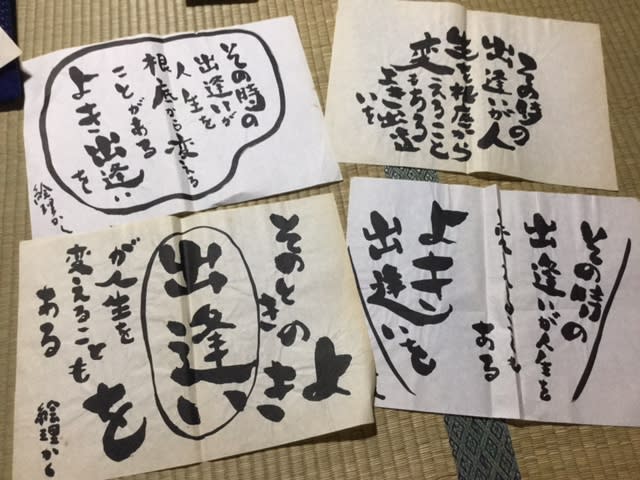 その時の
出逢いが
人生を
根底から変える
ことがある
よき出逢いを
絵理かく
その時の
出逢いが人
生を根底から
変えること
もある
よき出逢
いを
そのときの
出逢い
が人生を
変えることも
ある
よき
を
絵理かく
その時の
出逢いが人生を
ある
よき
出逢いを